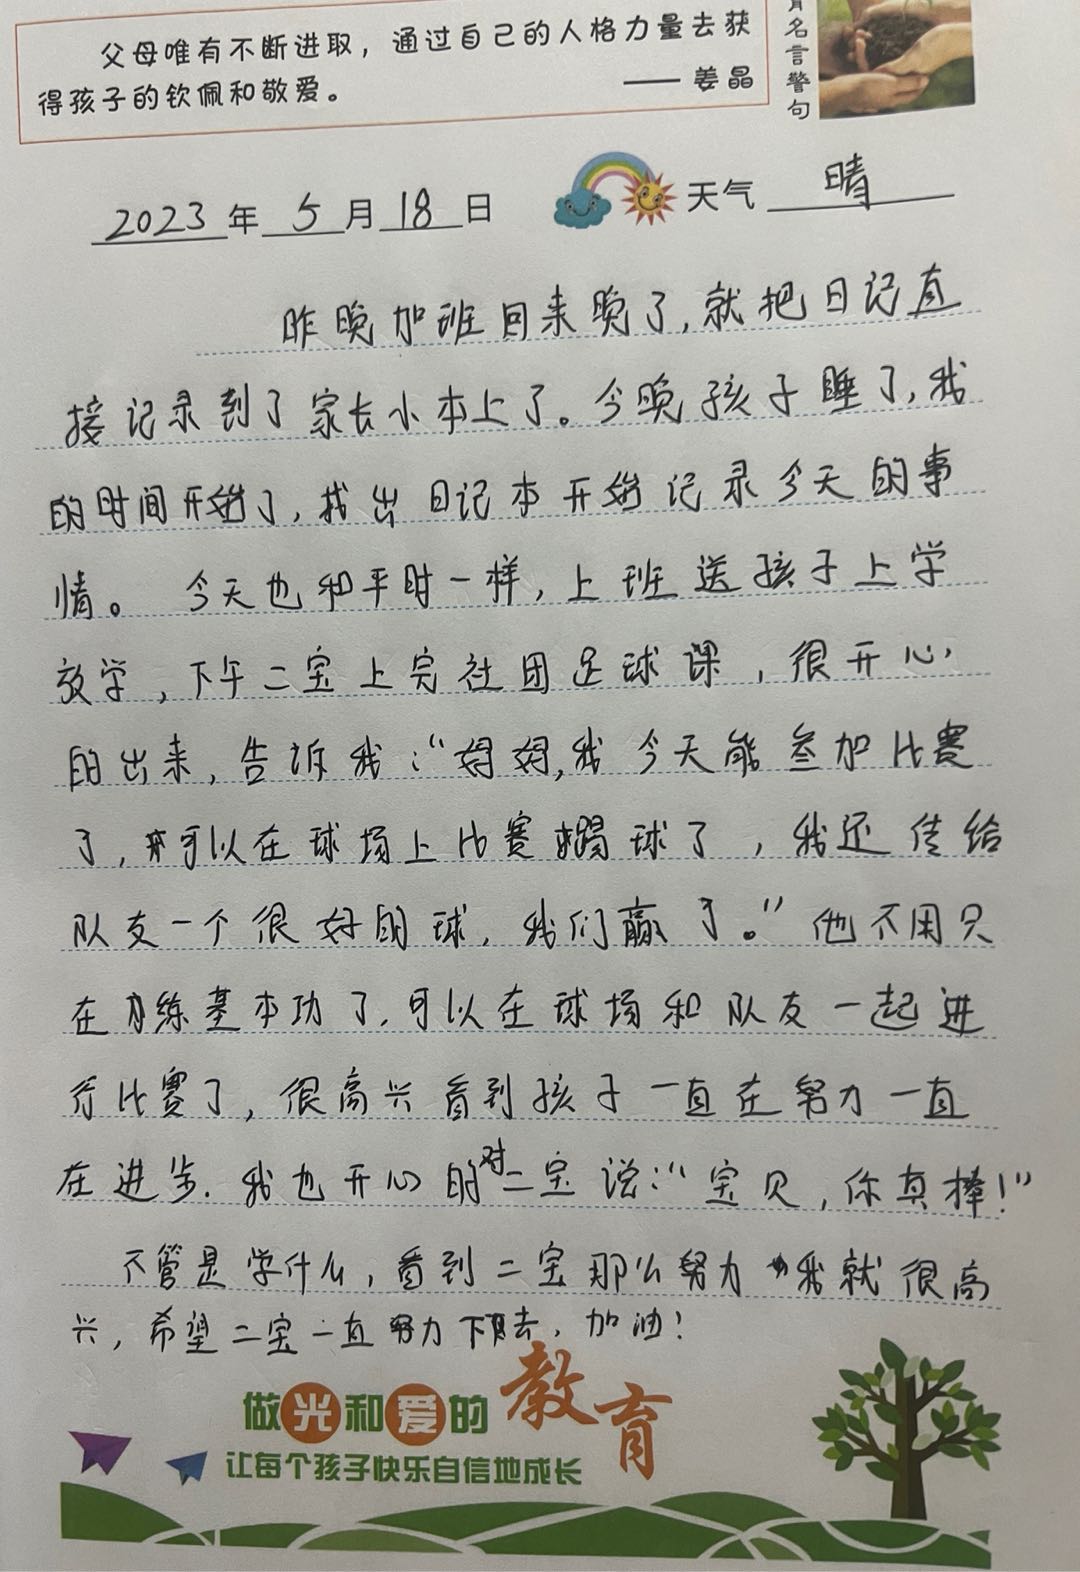 父母唯有不断进取，通过自己的人格力量去获
得孩子的钦佩和敬爱。 —— 姜晶
名言警句
2023年5月18日 天气 晴
昨晚加班回来晚了,就把日记直
接记录到了家长小本上了。今晚孩子睡了,我
的时间开始了,找出日记本开始记录今天的事
情。 今天也和平时一样,上班送孩子上学
放学,下午二宝上完社团足球课,很开心
的出来,告诉我:“妈妈,我今天能参加比赛
了,可以在球场上比赛踢球了,我还传给
队友一个很好的球,我们赢了。”他不用只
在练基本功了,可以在球场和队友一起进
行比赛了,很高兴看到孩子一直在努力一直
在进步.我也开心的对二宝说:“宝贝,你真棒!”
不管是学什么,看到二宝那么努力我就很高
兴,希望二宝一直努力下去,加油!
做光和爱的教育
让每个孩子快乐自信地成长